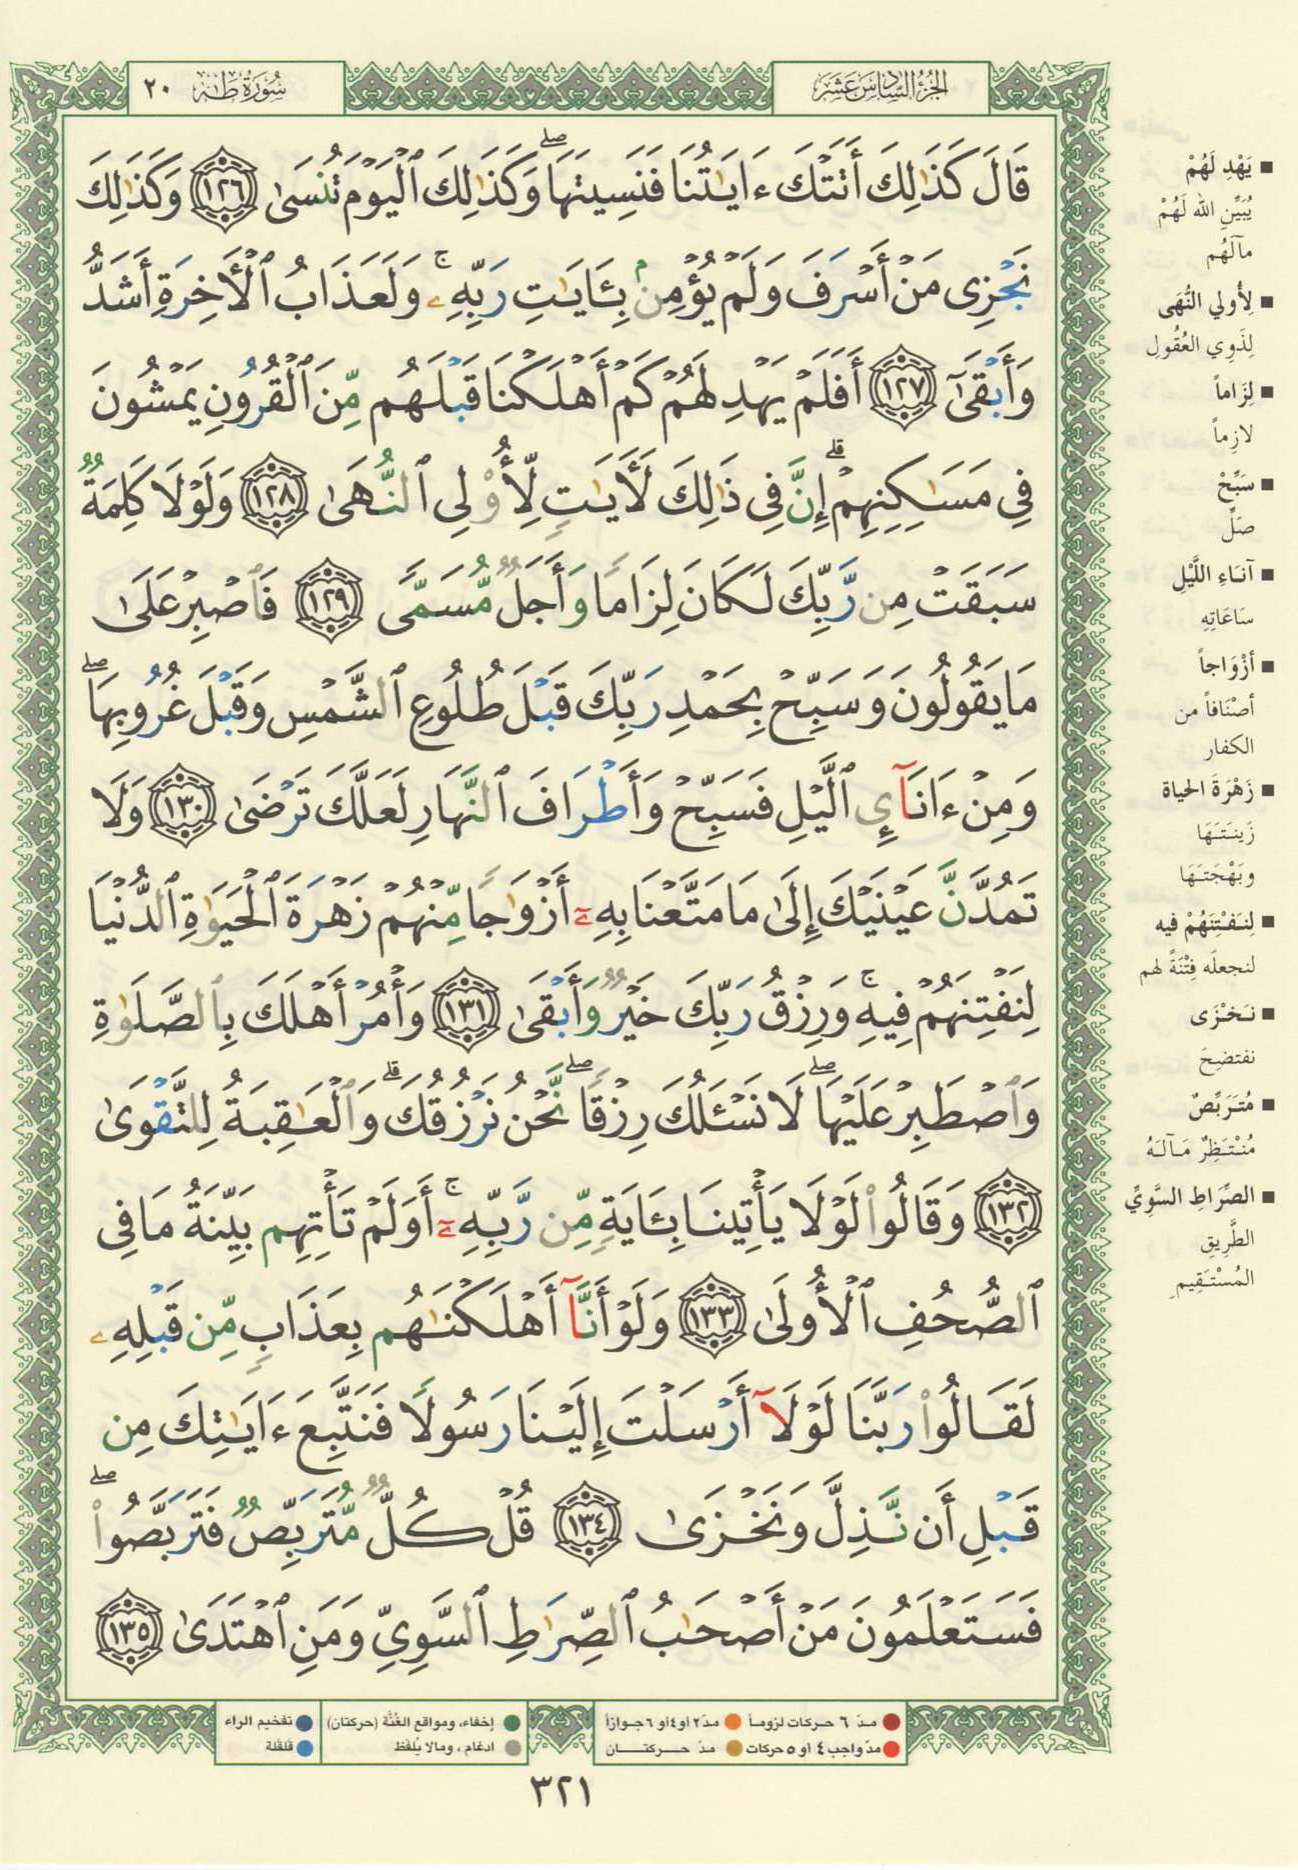 الجزء السادس عشر
سورة طه ٢٠
قَالَ كَذَٰلِكَ أَتَتْكَ ءَايَٰتُنَا فَنَسِيتَهَا ۖ وَكَذَٰلِكَ ٱلْيَوْمَ تُنسَىٰ ١٢٦ وَكَذَٰلِكَ
نَجْزِى مَنْ أَسْرَفَ وَلَمْ يُؤْمِنۢ بِـَٔايَٰتِ رَبِّهِۦ ۚ وَلَعَذَابُ ٱلْأَخِرَةِ أَشَدُّ
وَأَبْقَىٰٓ ١٢٧ أَفَلَمْ يَهْدِ لَهُمْ كَمْ أَهْلَكْنَا قَبْلَهُم مِّنَ ٱلْقُرُونِ يَمْشُونَ
فِى مَسَٰكِنِهِمْ ۗ إِنَّ فِى ذَٰلِكَ لَأَيَٰتٍ لِّأُو۟لِى ٱلنُّهَىٰ ١٢٨ وَلَوْلَا كَلِمَةٌ
سَبَقَتْ مِن رَّبِّكَ لَكَانَ لِزَامًا وَأَجَلٌ مُّسَمًّى ١٢٩ فَٱصْبِرْ عَلَىٰ
مَا يَقُولُونَ وَسَبِّحْ بِحَمْدِ رَبِّكَ قَبْلَ طُلُوعِ ٱلشَّمْسِ وَقَبْلَ غُرُوبِهَا ۖ
وَمِنْ ءَانَآئِ ٱلَّيْلِ فَسَبِّحْ وَأَطْرَافَ ٱلنَّهَارِ لَعَلَّكَ تَرْضَىٰ ١٣٠ وَلَا
تَمُدَّنَّ عَيْنَيْكَ إِلَىٰ مَا مَتَّعْنَا بِهِۦٓ أَزْوَٰجًا مِّنْهُمْ زَهْرَةَ ٱلْحَيَوٰةِ ٱلدُّنْيَا
لِنَفْتِنَهُمْ فِيهِ ۚ وَرِزْقُ رَبِّكَ خَيْرٌ وَأَبْقَىٰ ١٣١ وَأْمُرْ أَهْلَكَ بِٱلصَّلَوٰةِ
وَٱصْطَبِرْ عَلَيْهَا ۖ لَا نَسْـَٔلُكَ رِزْقًا ۖ نَّحْنُ نَرْزُقُكَ ۗ وَٱلْعَٰقِبَةُ لِلتَّقْوَىٰ
١٣٢ وَقَالُوا۟ لَوْلَا يَأْتِينَا بِـَٔايَةٍ مِّن رَّبِّهِۦٓ ۚ أَوَلَمْ تَأْتِهِم بَيِّنَةُ مَا فِى
ٱلصُّحُفِ ٱلْأُولَىٰ ١٣٣ وَلَوْ أَنَّآ أَهْلَكْنَٰهُم بِعَذَابٍ مِّن قَبْلِهِۦ
لَقَالُوا۟ رَبَّنَا لَوْلَآ أَرْسَلْتَ إِلَيْنَا رَسُولًا فَنَتَّبِعَ ءَايَٰتِكَ مِن
قَبْلِ أَن نَّذِلَّ وَنَخْزَىٰ ١٣٤ قُلْ كُلٌّ مُّتَرَبِّصٌ فَتَرَبَّصُوا۟ ۖ
فَسَتَعْلَمُونَ مَنْ أَصْحَٰبُ ٱلصِّرَٰطِ ٱلسَّوِىِّ وَمَنِ ٱهْتَدَىٰ ١٣٥
■ يَهْدِ لَهُمْ
يُبَيِّنِ الله لَهُمْ
مآلَهُم
■ لِأُولي النُّهَى
لِذَوِي العُقُولِ
■ لِزَاماً
لازِماً
■ سَبِّحْ
صَلِّ
■ آناءِ اللَّيْلِ
سَاعَاتِهِ
■ أزْوَاجاً
أصْنَافاً من
الكفار
■ زَهْرَةَ الحياة
زَينَتَهَا
وبَهْجَتَهَا
■ لِنَفْتِنَهُمْ فيه
لنجعلَه فِتْنَةً لهم
■ نَخْزَى
نفتضِحَ
■ مُتَرَبِّصٌ
مُنْتَظِرٌ مَآلَهُ
■ الصِّرَاطِ السَّوِيِّ
الطَّرِيقِ
المُسْتَقِيمِ
مدّ ٦ حركات لزوماً
مدّ ٢ أو ٤ أو ٦ جوازاً
إخفاء، ومواقع الغُنَّة (حركتان)
تفخيم الراء
مدّ واجب ٤ أو ٥ حركات
مدّ حركتان
ادغام، ومالا يُلفَظ
قلقلة
٣٢١